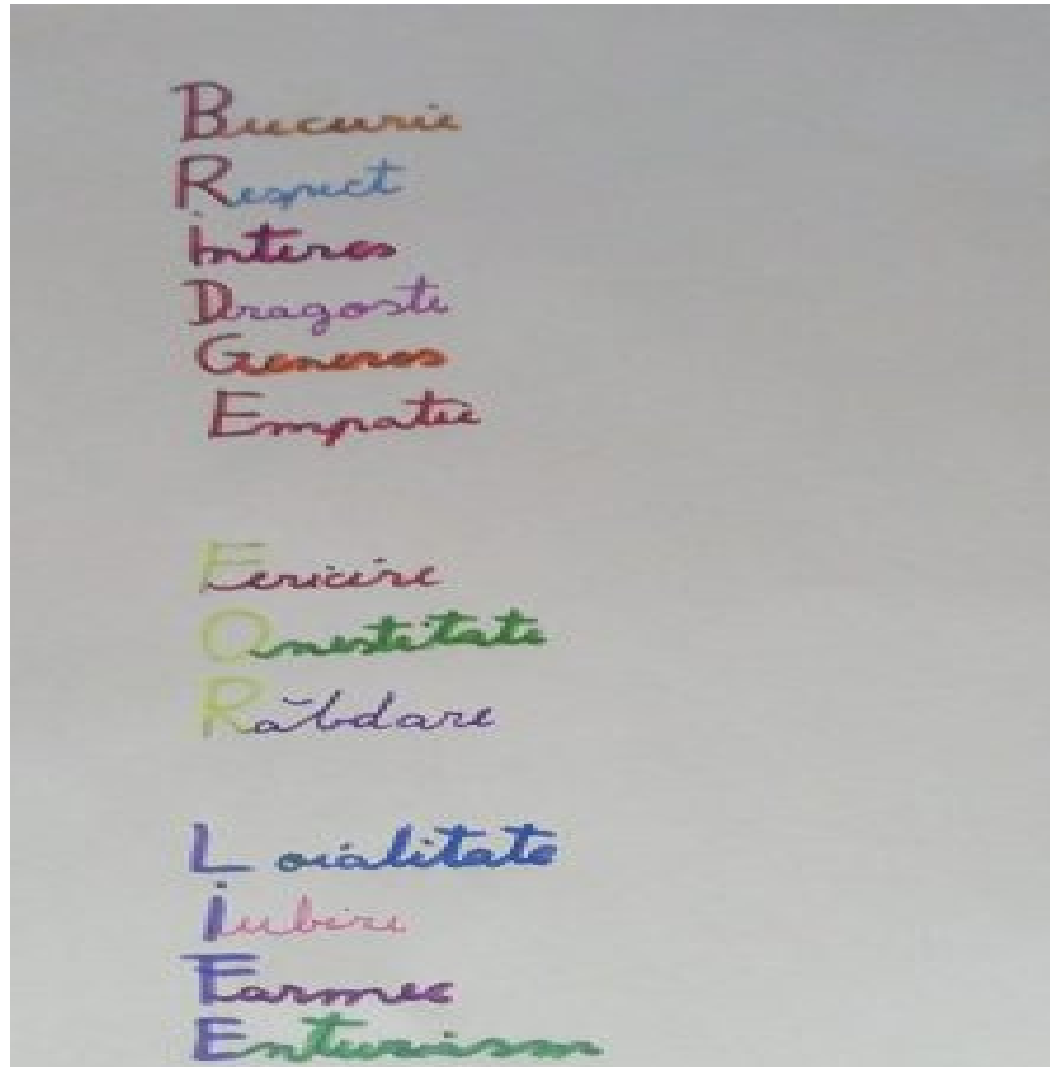 Bucurie
Respect
interes
Dragoste
Generos
Empatie
Fericire
Onestitate
Răbdare
Loialitate
iubire
Farmec
Entuziasm